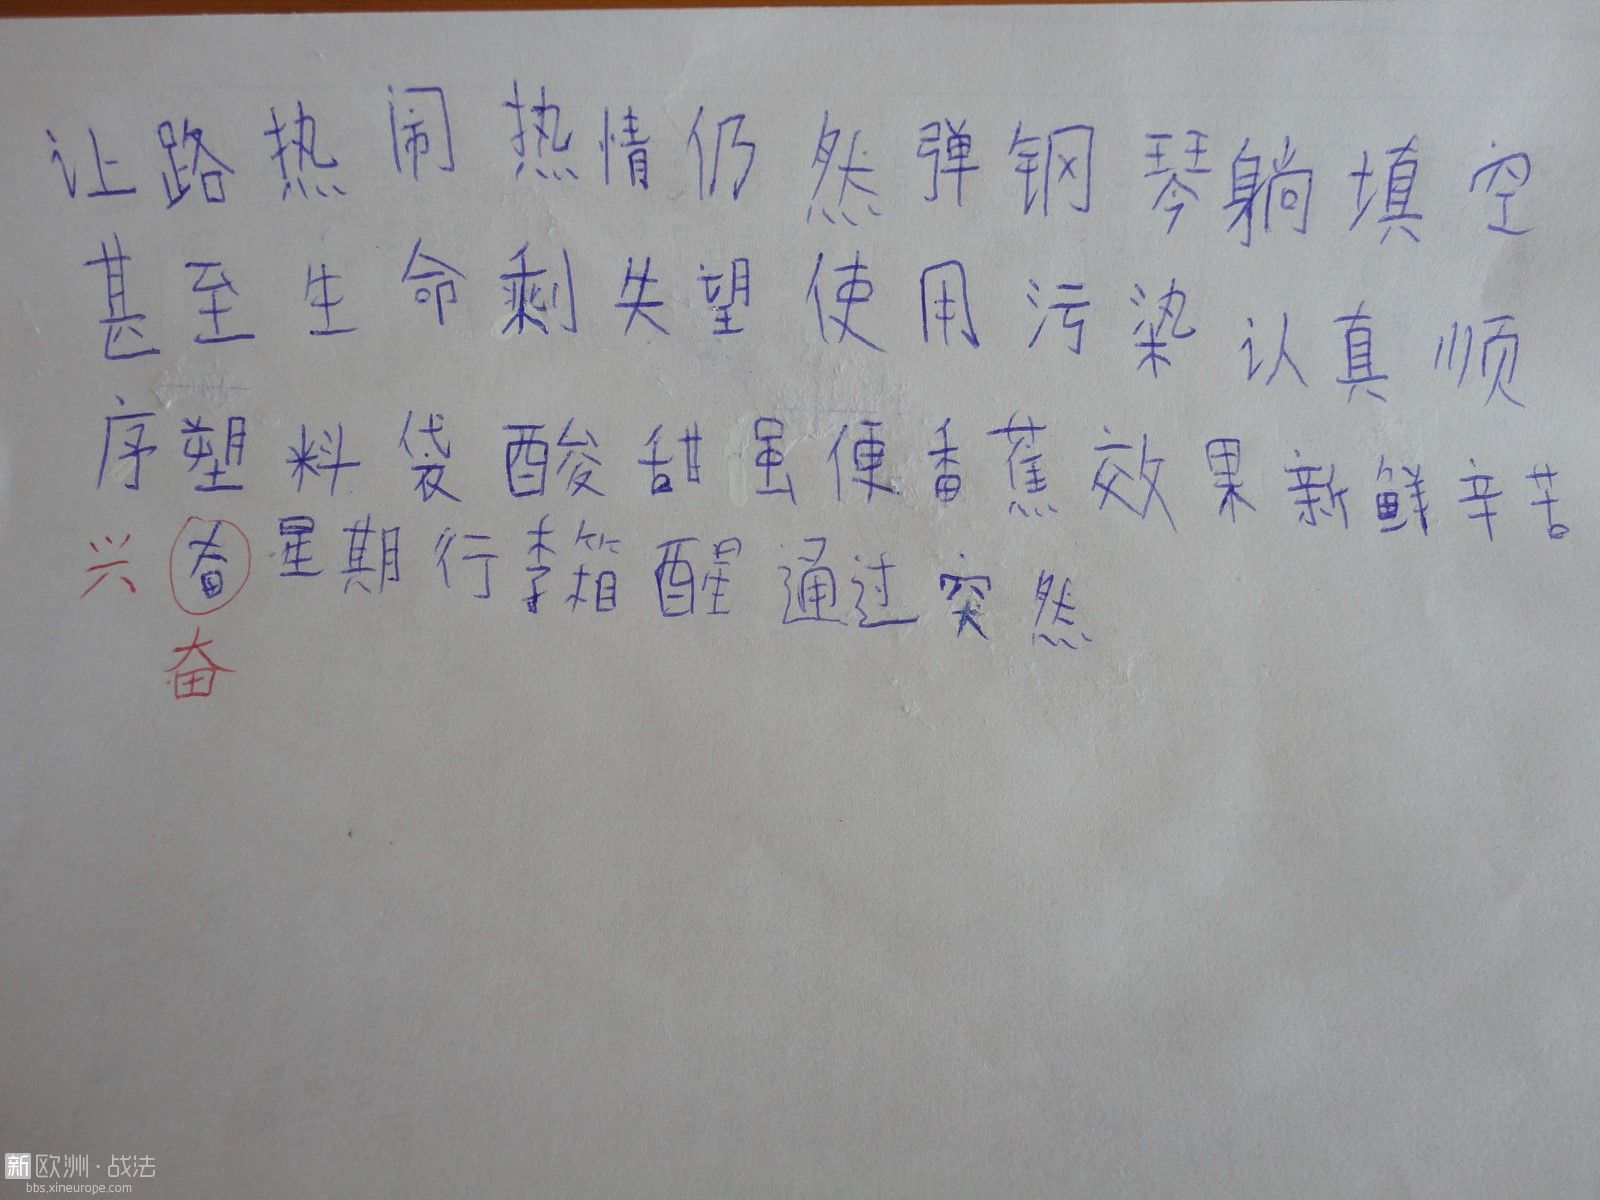 让路热闹热情仍然弹钢琴躺填空
甚至生命剩失望使用污染认真顺
序塑料袋酸甜虽便香蕉效果新鲜辛苦
兴星期行李箱醒通过突然
奋
新欧洲·战法
bbs.xineurope.com